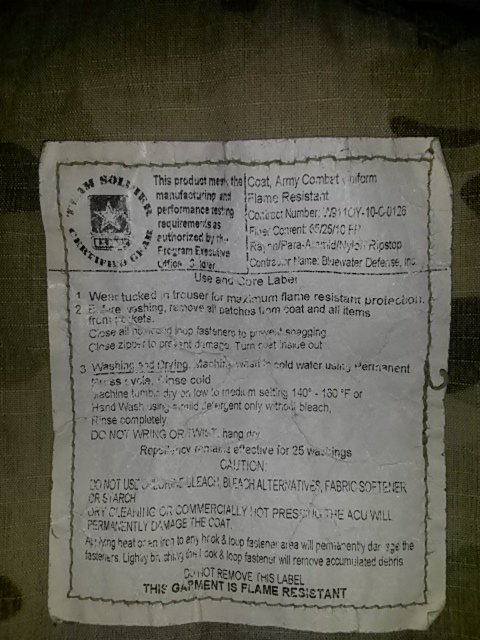 TEAM SOLDIER
CERTIFIED GEAR
This product meets the
manufacturing and
performance testing
requirements as
authorized by the
Program Executive
Office Soldier
Coat, Army Combat Uniform
Flame Resistant
Contract Number: W911QY-10-C-0126
Fiber Content: 65/25/10 FR
Rayon/Para-Aramid/Nylon Ripstop
Contractor Name: Bluewater Defense, Inc.
Use and Care Label
1 Wear tucked in trouser for maximum flame resistant protection.
2. Before washing, remove all patches from coat and all items
from pockets.
Close all hook and loop fasteners to prevent snagging
Close zipper to prevent damage. Turn coat inside out
3 Washing and Drying. Machine wash in cold water using Permanent
Press cycle. Rinse cold
Machine tumble dry on low to medium setting 140° - 160 °F or
Hand Wash using a mild detergent only without bleach,
Rinse completely
DO NOT WRING OR TWIST, hang dry
Repellency remains effective for 25 washings
CAUTION:
DO NOT USE CHLORINE BLEACH, BLEACH ALTERNATIVES, FABRIC SOFTENER
OR STARCH
DRY CLEANING OR COMMERCIALLY HOT PRESSING THE ACU WILL
PERMANENTLY DAMAGE THE COAT.
Applying heat or an iron to any hook & loop fastener area will permanently damage the
fasteners. Lightly brushing the hook & loop fastener will remove accumulated debris
DO NOT REMOVE THIS LABEL
THIS GARMENT IS FLAME RESISTANT